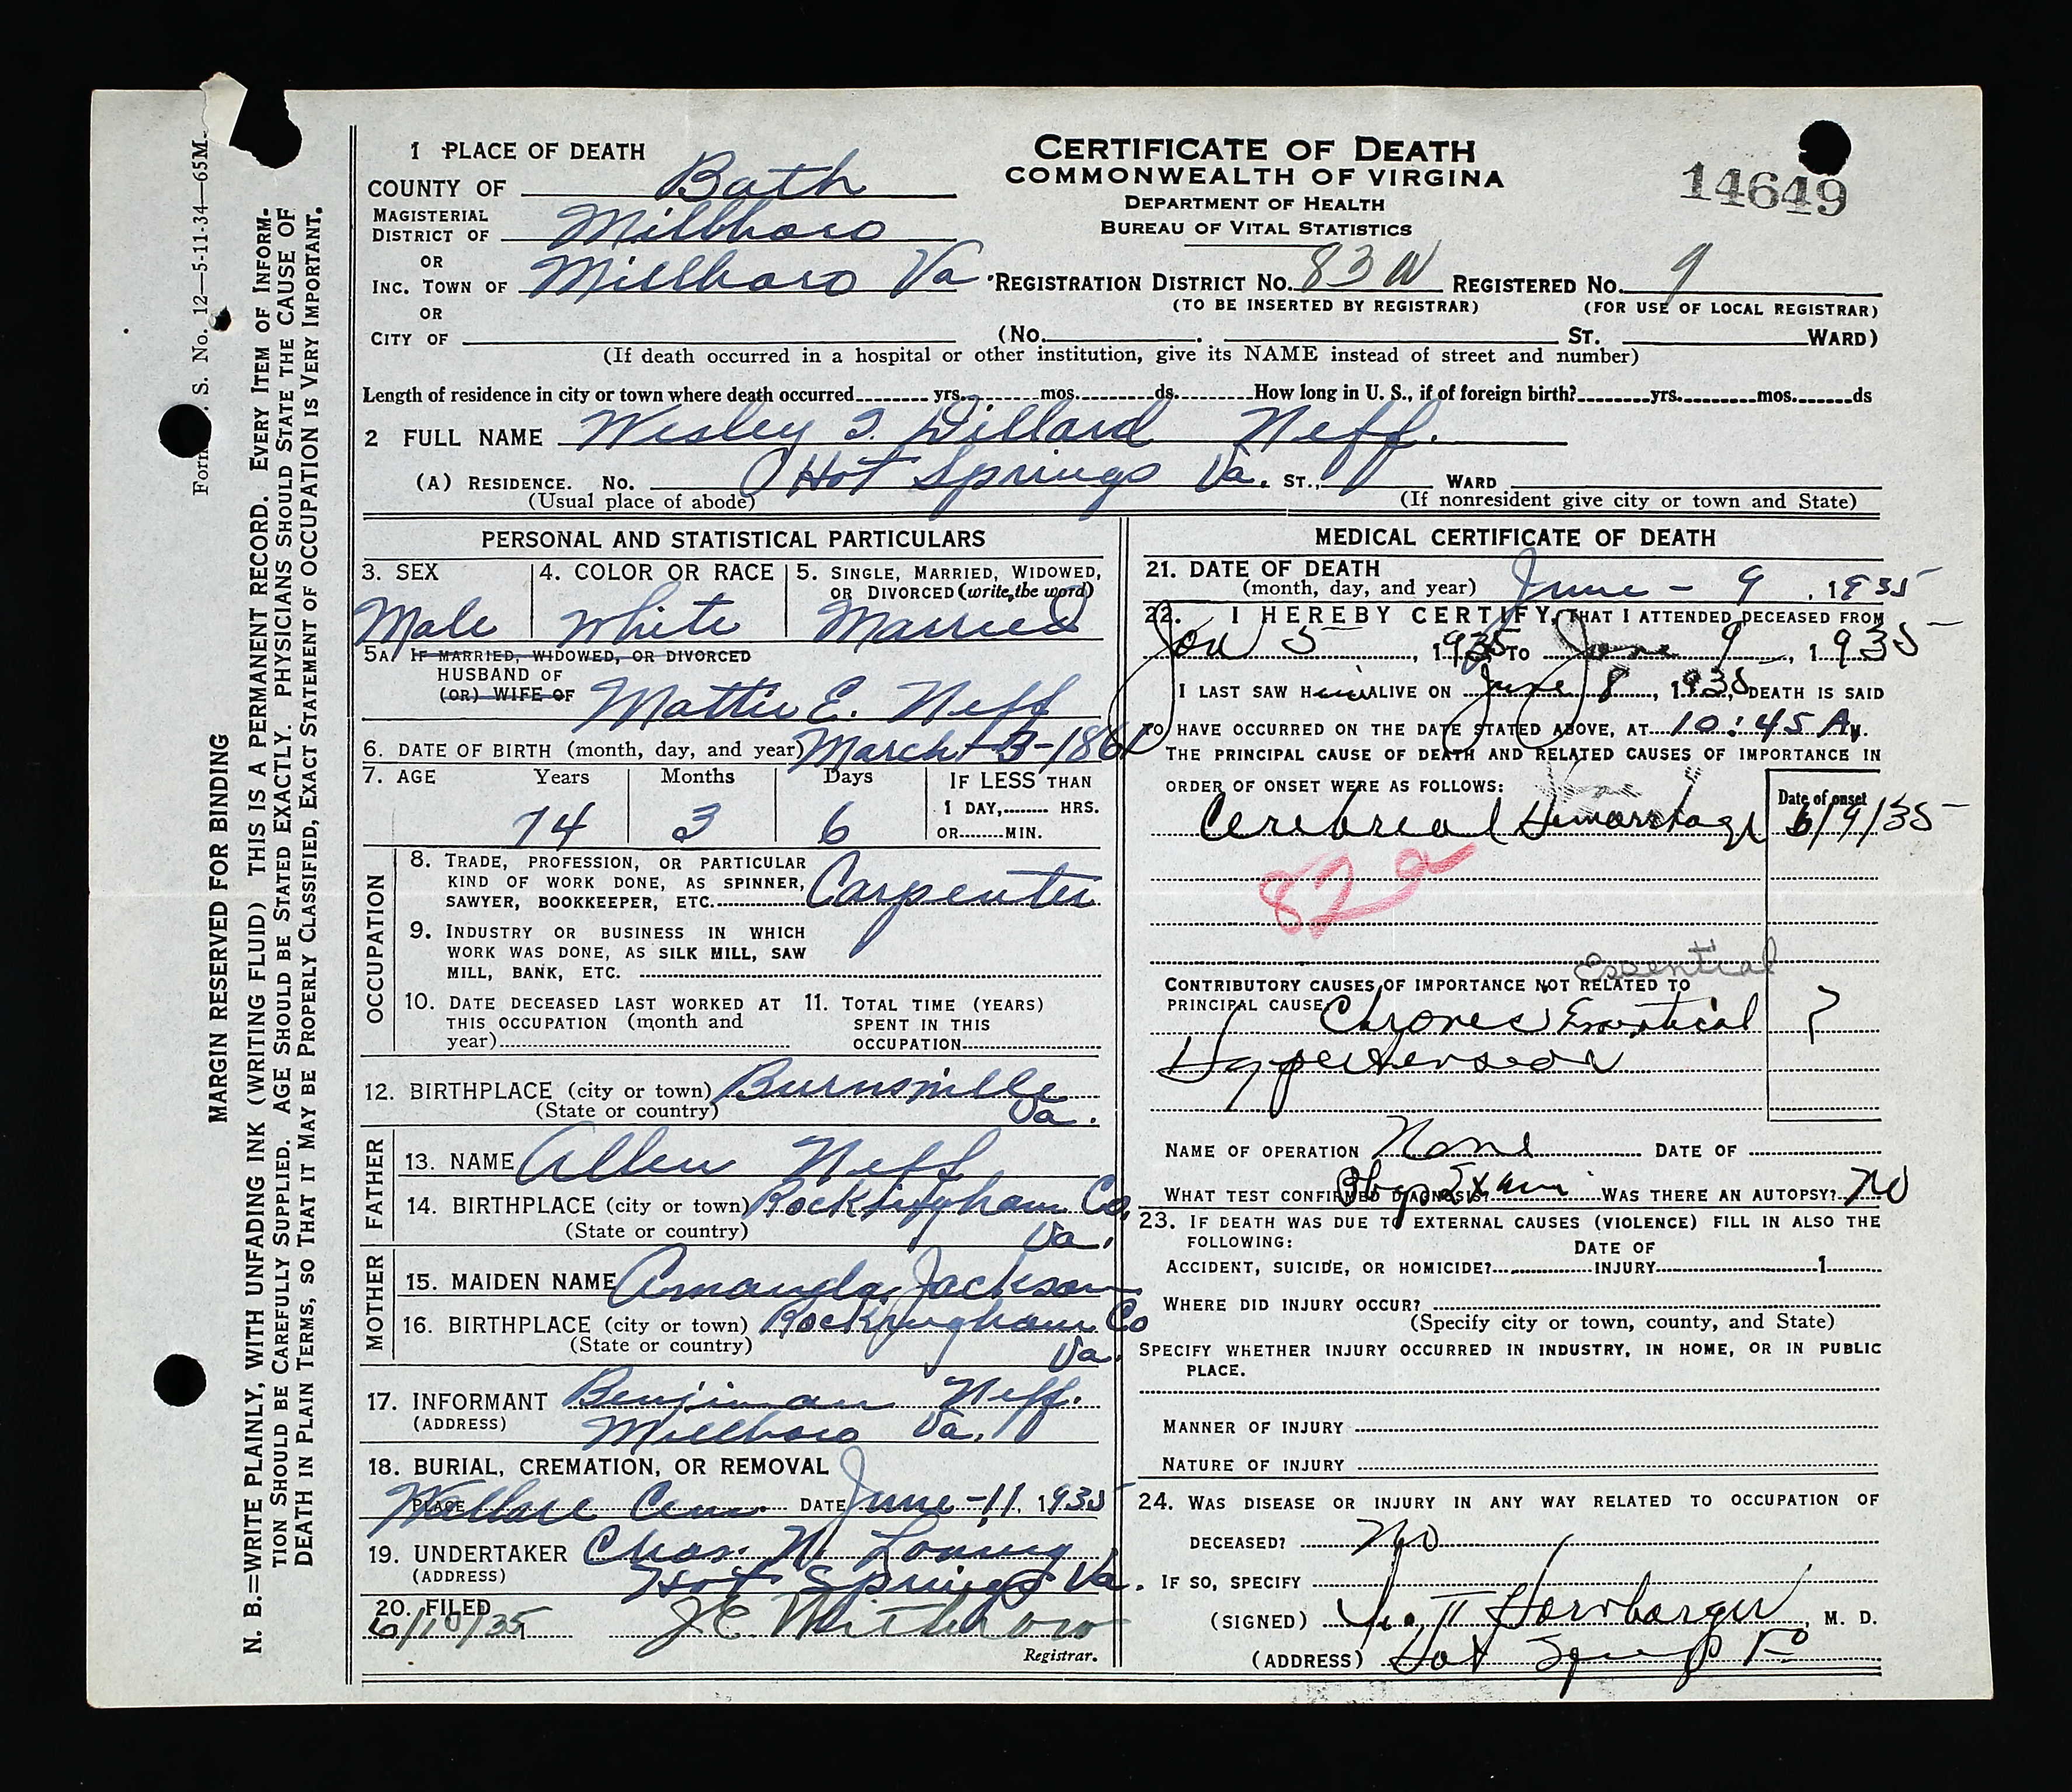 Form V. S. No. 12—5-11-34—65M.
MARGIN RESERVED FOR BINDING
N. B.=WRITE PLAINLY, WITH UNFADING INK (WRITING FLUID) THIS IS A PERMANENT RECORD. EVERY ITEM OF INFORM-
TION SHOULD BE CAREFULLY SUPPLIED. AGE SHOULD BE STATED EXACTLY. PHYSICIANS SHOULD STATE THE CAUSE OF
DEATH IN PLAIN TERMS, SO THAT IT MAY BE PROPERLY CLASSIFIED, EXACT STATEMENT OF OCCUPATION IS VERY IMPORTANT.
CERTIFICATE OF DEATH
COMMONWEALTH OF VIRGINA
DEPARTMENT OF HEALTH
BUREAU OF VITAL STATISTICS
14649
1 PLACE OF DEATH
COUNTY OF Bath
MAGISTERIAL DISTRICT OF Millboro
OR
INC. TOWN OF Millboro Va REGISTRATION DISTRICT NO. 83 REGISTERED NO. 9
(TO BE INSERTED BY REGISTRAR) (FOR USE OF LOCAL REGISTRAR)
OR
CITY OF (NO. ST. WARD)
(If death occurred in a hospital or other institution, give its NAME instead of street and number)
Length of residence in city or town where death occurred yrs. mos. ds. How long in U. S., if of foreign birth? yrs. mos. ds
2 FULL NAME Wesley Dillard Neff.
(A) RESIDENCE. NO. Hot Springs Va. ST., WARD
(Usual place of abode) (If nonresident give city or town and State)
PERSONAL AND STATISTICAL PARTICULARS
3. SEX 4. COLOR OR RACE 5. SINGLE, MARRIED, WIDOWED,
OR DIVORCED (write the word)
Male White Married
5A. IF MARRIED, WIDOWED, OR DIVORCED
HUSBAND OF
(OR) WIFE OF Mattie E. Neff
6. DATE OF BIRTH (month, day, and year) March - 3 - 1861
7. AGE Years Months Days IF LESS THAN
1 DAY, HRS.
74 3 6 OR MIN.
OCCUPATION
8. TRADE, PROFESSION, OR PARTICULAR
KIND OF WORK DONE, AS SPINNER,
SAWYER, BOOKKEEPER, ETC. Carpenter
9. INDUSTRY OR BUSINESS IN WHICH
WORK WAS DONE, AS SILK MILL, SAW
MILL, BANK, ETC.
10. DATE DECEASED LAST WORKED AT
THIS OCCUPATION (month and
year)
11. TOTAL TIME (YEARS)
SPENT IN THIS
OCCUPATION
12. BIRTHPLACE (city or town) Burnsville
(State or country) Va.
FATHER
13. NAME Allen Neff
14. BIRTHPLACE (city or town) Rockingham Co.
(State or country) Va.
MOTHER
15. MAIDEN NAME Amanda Jackson
16. BIRTHPLACE (city or town) Rockingham Co
(State or country) Va.
17. INFORMANT Benjiman Neff.
(ADDRESS) Millboro Va.
18. BURIAL, CREMATION, OR REMOVAL
PLACE Wallace Cem. DATE June - 11. 1935
19. UNDERTAKER Chas. N. Loving
(ADDRESS) Hot Springs Va.
20. FILED
6/10/35 J E Witherow
Registrar.
MEDICAL CERTIFICATE OF DEATH
21. DATE OF DEATH
(month, day, and year) June - 9 , 1935
22. I HEREBY CERTIFY, THAT I ATTENDED DECEASED FROM
5, 1935 TO June 9, 1935
I LAST SAW HIM ALIVE ON June 8, 1935, DEATH IS SAID
TO HAVE OCCURRED ON THE DATE STATED ABOVE, AT 10:45 A M.
THE PRINCIPAL CAUSE OF DEATH AND RELATED CAUSES OF IMPORTANCE IN
ORDER OF ONSET WERE AS FOLLOWS: Date of onset
Cerebreal Hemorrhage 6/9/35
82a
Essential
CONTRIBUTORY CAUSES OF IMPORTANCE NOT RELATED TO
PRINCIPAL CAUSE: Chronic ?
Hypertension
NAME OF OPERATION None DATE OF
WHAT TEST CONFIRMED DIAGNOSIS? Phys Exam WAS THERE AN AUTOPSY? No
23. IF DEATH WAS DUE TO EXTERNAL CAUSES (VIOLENCE) FILL IN ALSO THE
FOLLOWING:
DATE OF
ACCIDENT, SUICIDE, OR HOMICIDE? INJURY 1
WHERE DID INJURY OCCUR?
(Specify city or town, county, and State)
SPECIFY WHETHER INJURY OCCURRED IN INDUSTRY, IN HOME, OR IN PUBLIC
PLACE.
MANNER OF INJURY
NATURE OF INJURY
24. WAS DISEASE OR INJURY IN ANY WAY RELATED TO OCCUPATION OF
DECEASED? No
IF SO, SPECIFY
(SIGNED) Hornbarger, M. D.
(ADDRESS) Hot Springs Va